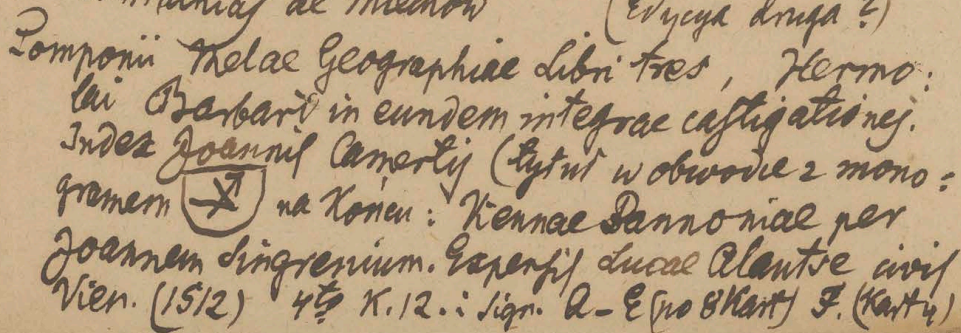 Mathias de Miechow (Edycya druga?)
Pomponii Melae Geographiae Libri tres, Hermo:
lai Barbari in eundem integrae castigationes.
Index Joannis Camertis (tytuł w obwodzie z mono:
gramem na Końcu: Viennae Pannoniae per
Joannem Singrenium. Expensis Lucae Alantse civis
Vien. (1512) 4to K. 12. i sign. A-E (po 8 Kart) F. (Kart 4)